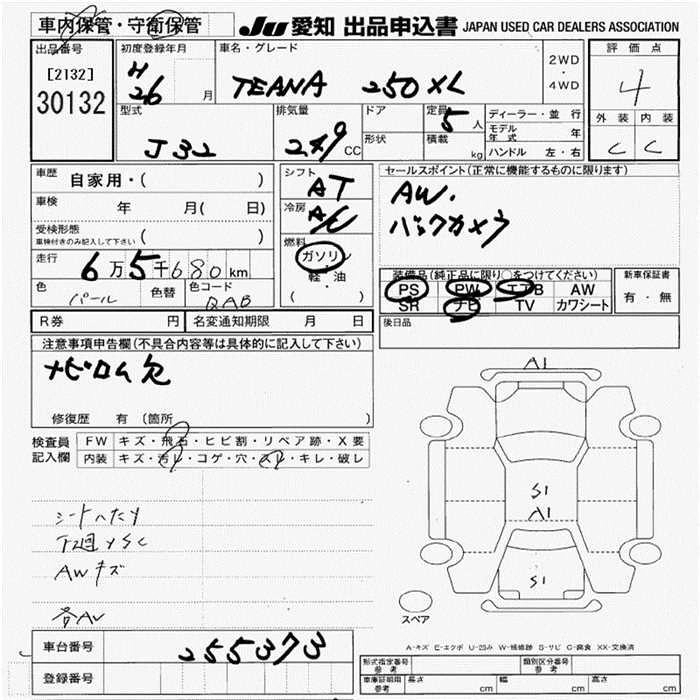 車内保管・守衛保管 JU 愛知 出品申込書 JAPAN USED CAR DEALERS ASSOCIATION
出品番号 初度登録年月 車名・グレード 評価点
[2132] H 26 月 TEANA 250XL 2WD・4WD 4
30132
型式 排気量 ドア 定員 ディーラー・並行 外装 内装
J32 249 CC 形状 5人 モデル年式 年 C C
積載 kg ハンドル 左・右
車歴 自家用・( ) シフト AT セールスポイント(正常に機能するものに限ります)
車検 年 月( 日) 冷房 A/C AW.
受検形態 バックカメラ
車検付きのみ記入して下さい ( ) 燃料
走行 6万5千680km ガソリン・軽・油
色 パール 色替 色コード QAB ( )
装備品(純正品に限り○をつけてください) 新車保証書
PS PW エアB AW 有・無
SR ナビ TV カワシート
R券 円 名変通知期限 月 日 後日品
注意事項申告欄(不具合内容等は具体的に記入して下さい)
ナビロム欠
修復歴 有 (箇所 )
検査員記入欄 FW キズ・飛石・ヒビ割・リペア跡・X要
内装 キズ・汚レ・コゲ・穴・スレ・キレ・破レ
A1
S1
A1
S1
シートヘタリ
下廻りSC
AWキズ
スペア
各AU
A-キズ E-エクボ U-凹み W-補修跡 S-サビ C-腐食 XX-交換済
車台番号 255373
登録番号
形式指定番号 参考 類別区分番号 参考
車庫証明用 参考 長さ cm 幅 cm 高さ cm